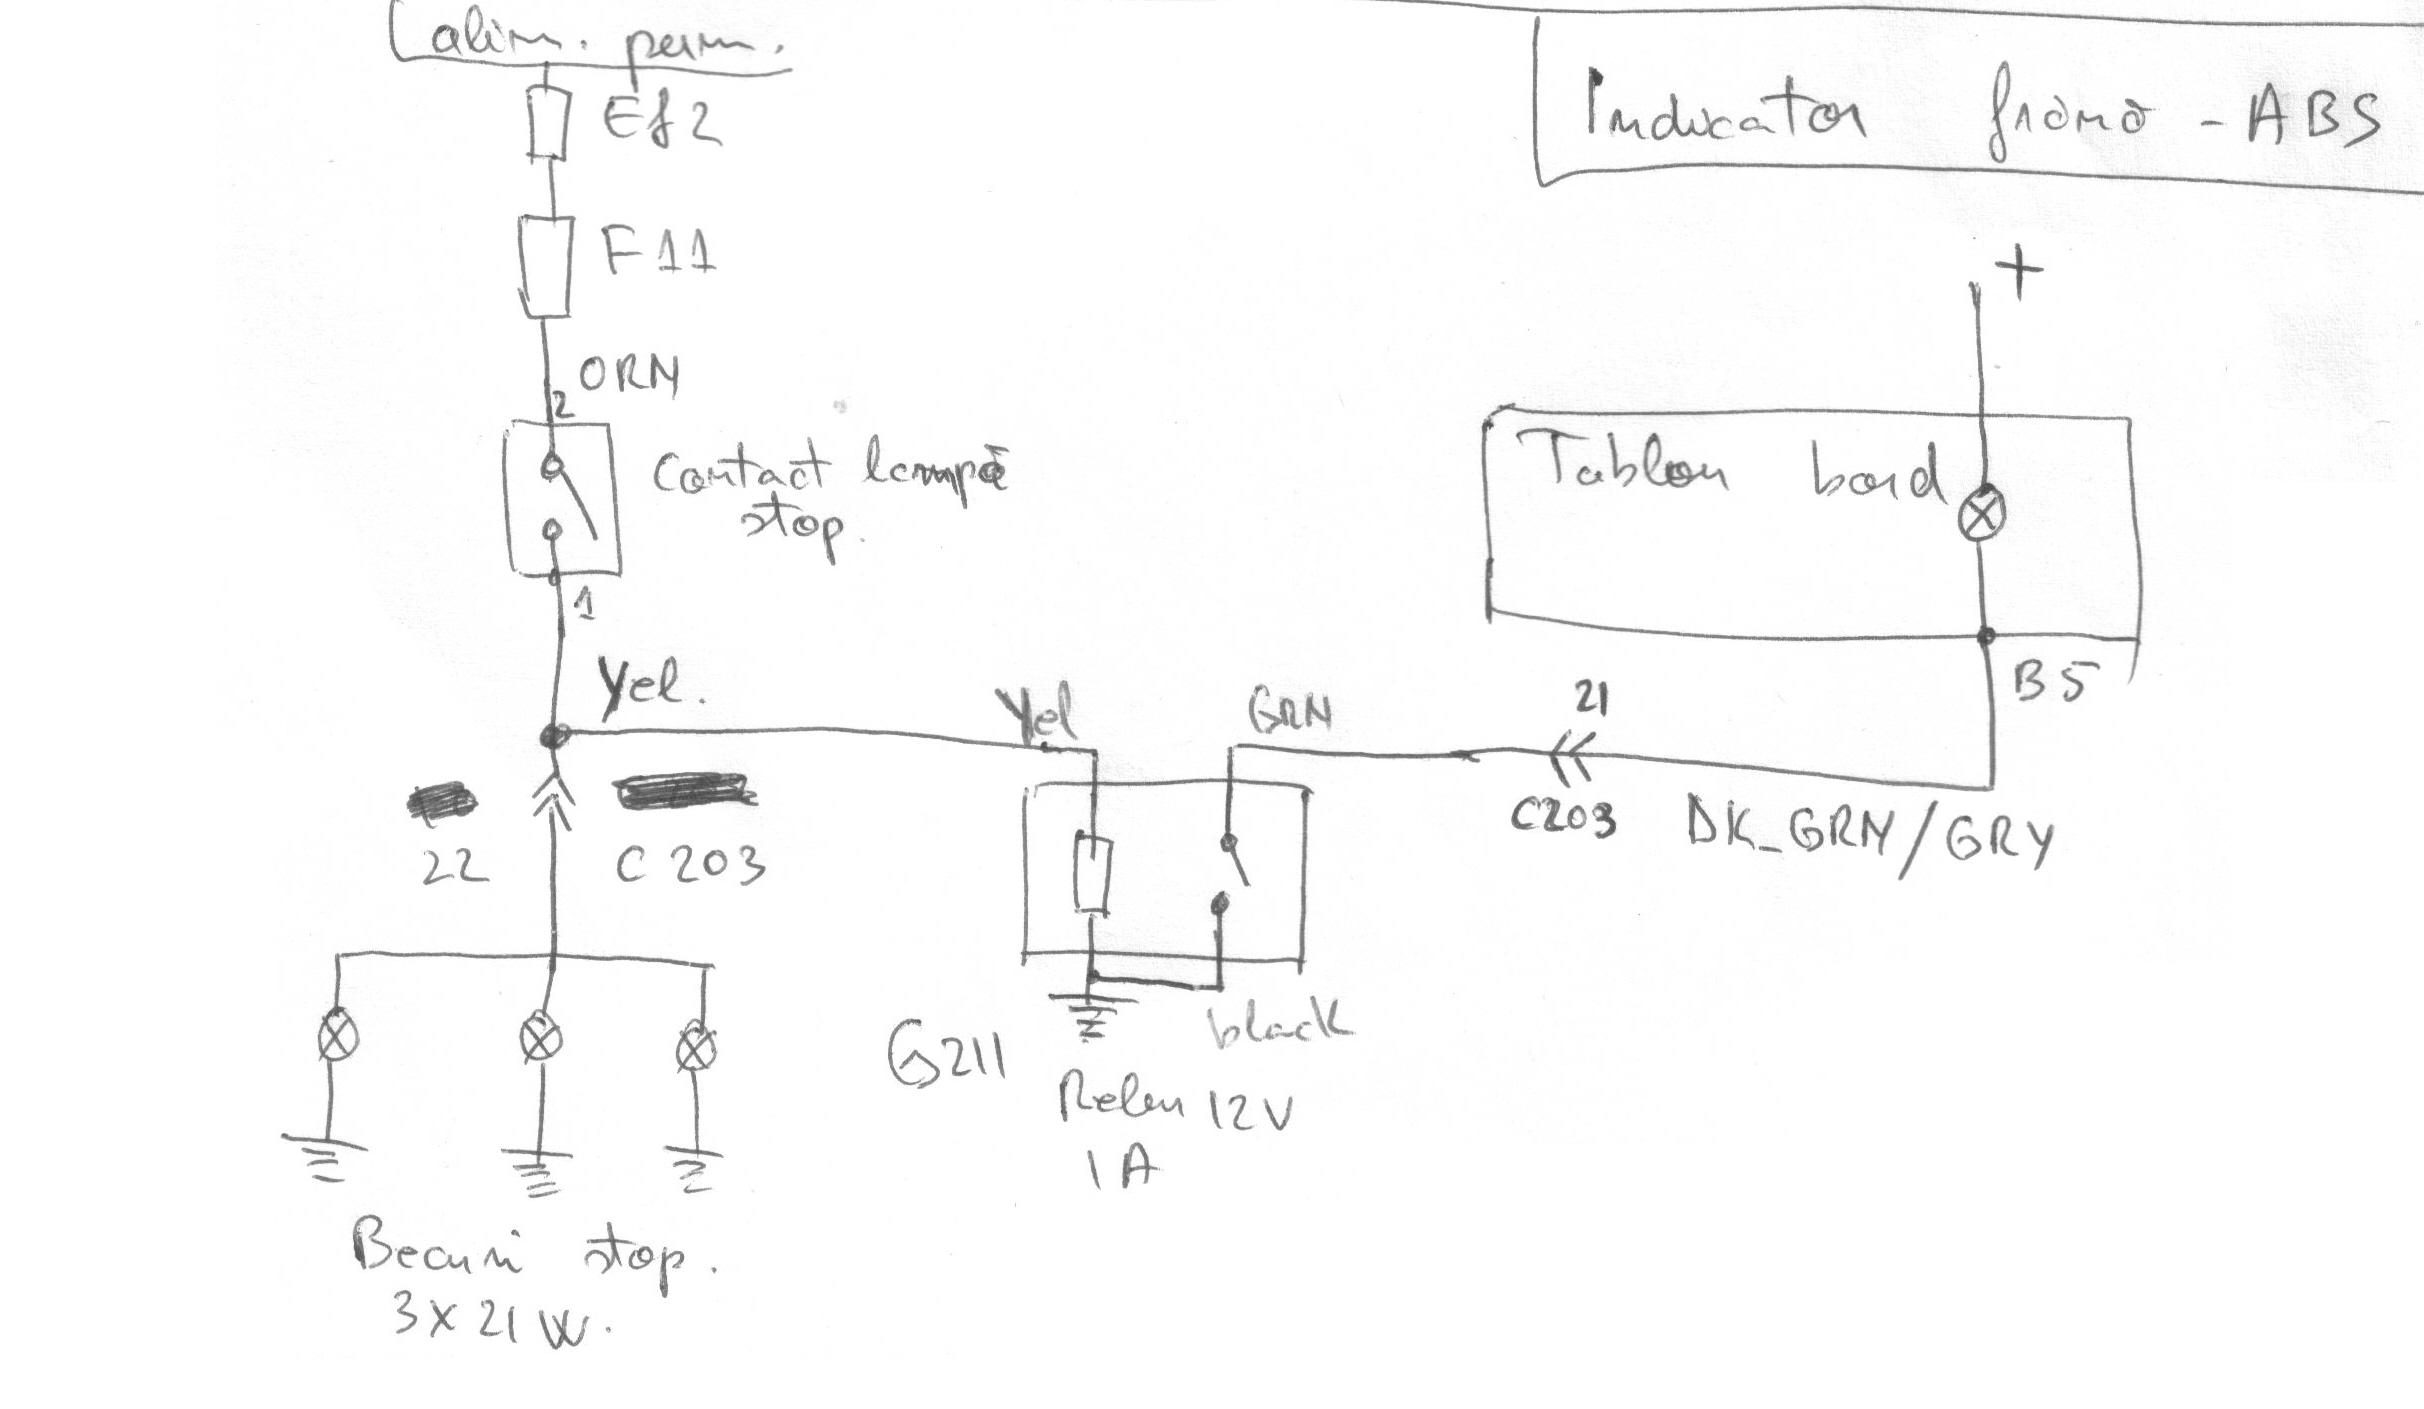 alim. perm.
Indicator frână - ABS
Ef2
F11
+
ORN
2
Contact lampă
stop.
Tablou bord
1
Yel.
Yel
GRN
21
B5
22
C203
C203
DK_GRN/GRY
G211
black
Releu 12V
1A
Becuri stop.
3x21W.